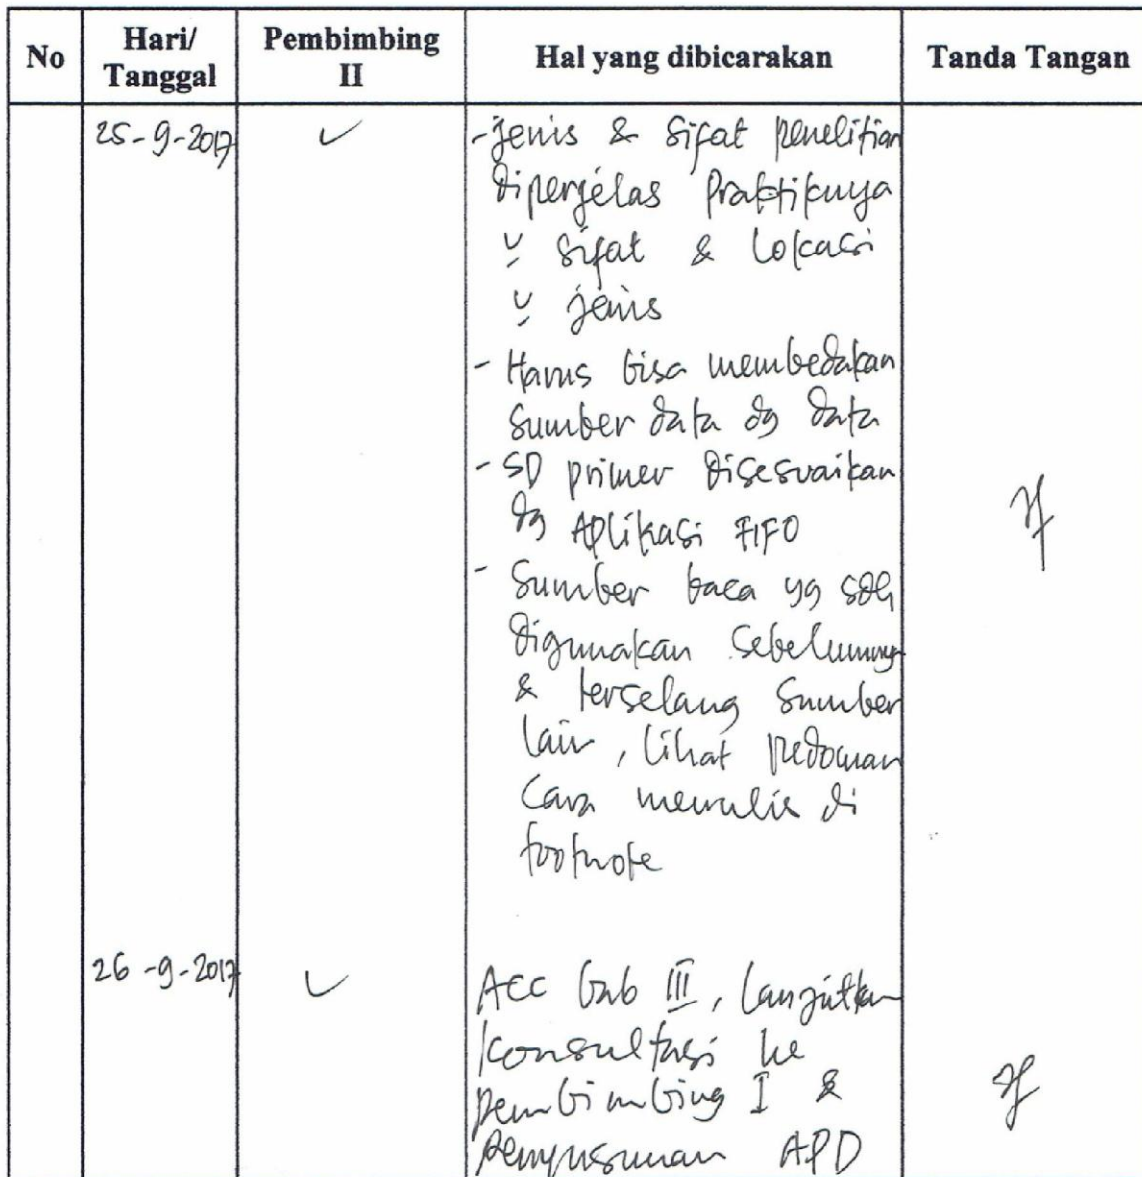 No Hari/ Tanggal Pembimbing II Hal yang dibicarakan Tanda Tangan
25-9-2017 ✓ - jenis & sifat penelitian
diperjelas Praktiknya
sifat & lokasi
jenis
- Harus bisa membedakan
Sumber data dg data
- SD primer disesuaikan
dg Aplikasi FIFO
- Sumber baca yg sdh
digunakan sebelumnya
& terselang sumber
lain, lihat pedoman
Cara menulis di
footnote
26-9-2017 ✓ ACC bab III, lanjutkan
konsultasi ke
pembimbing I &
penyusunan APD